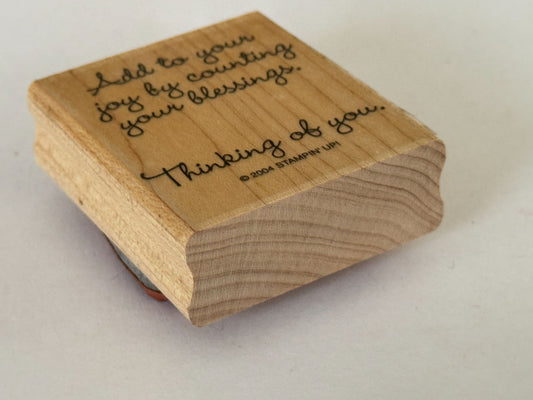 Add to your
joy by counting
your blessings.
Thinking of you.
© 2004 STAMPIN' UP!